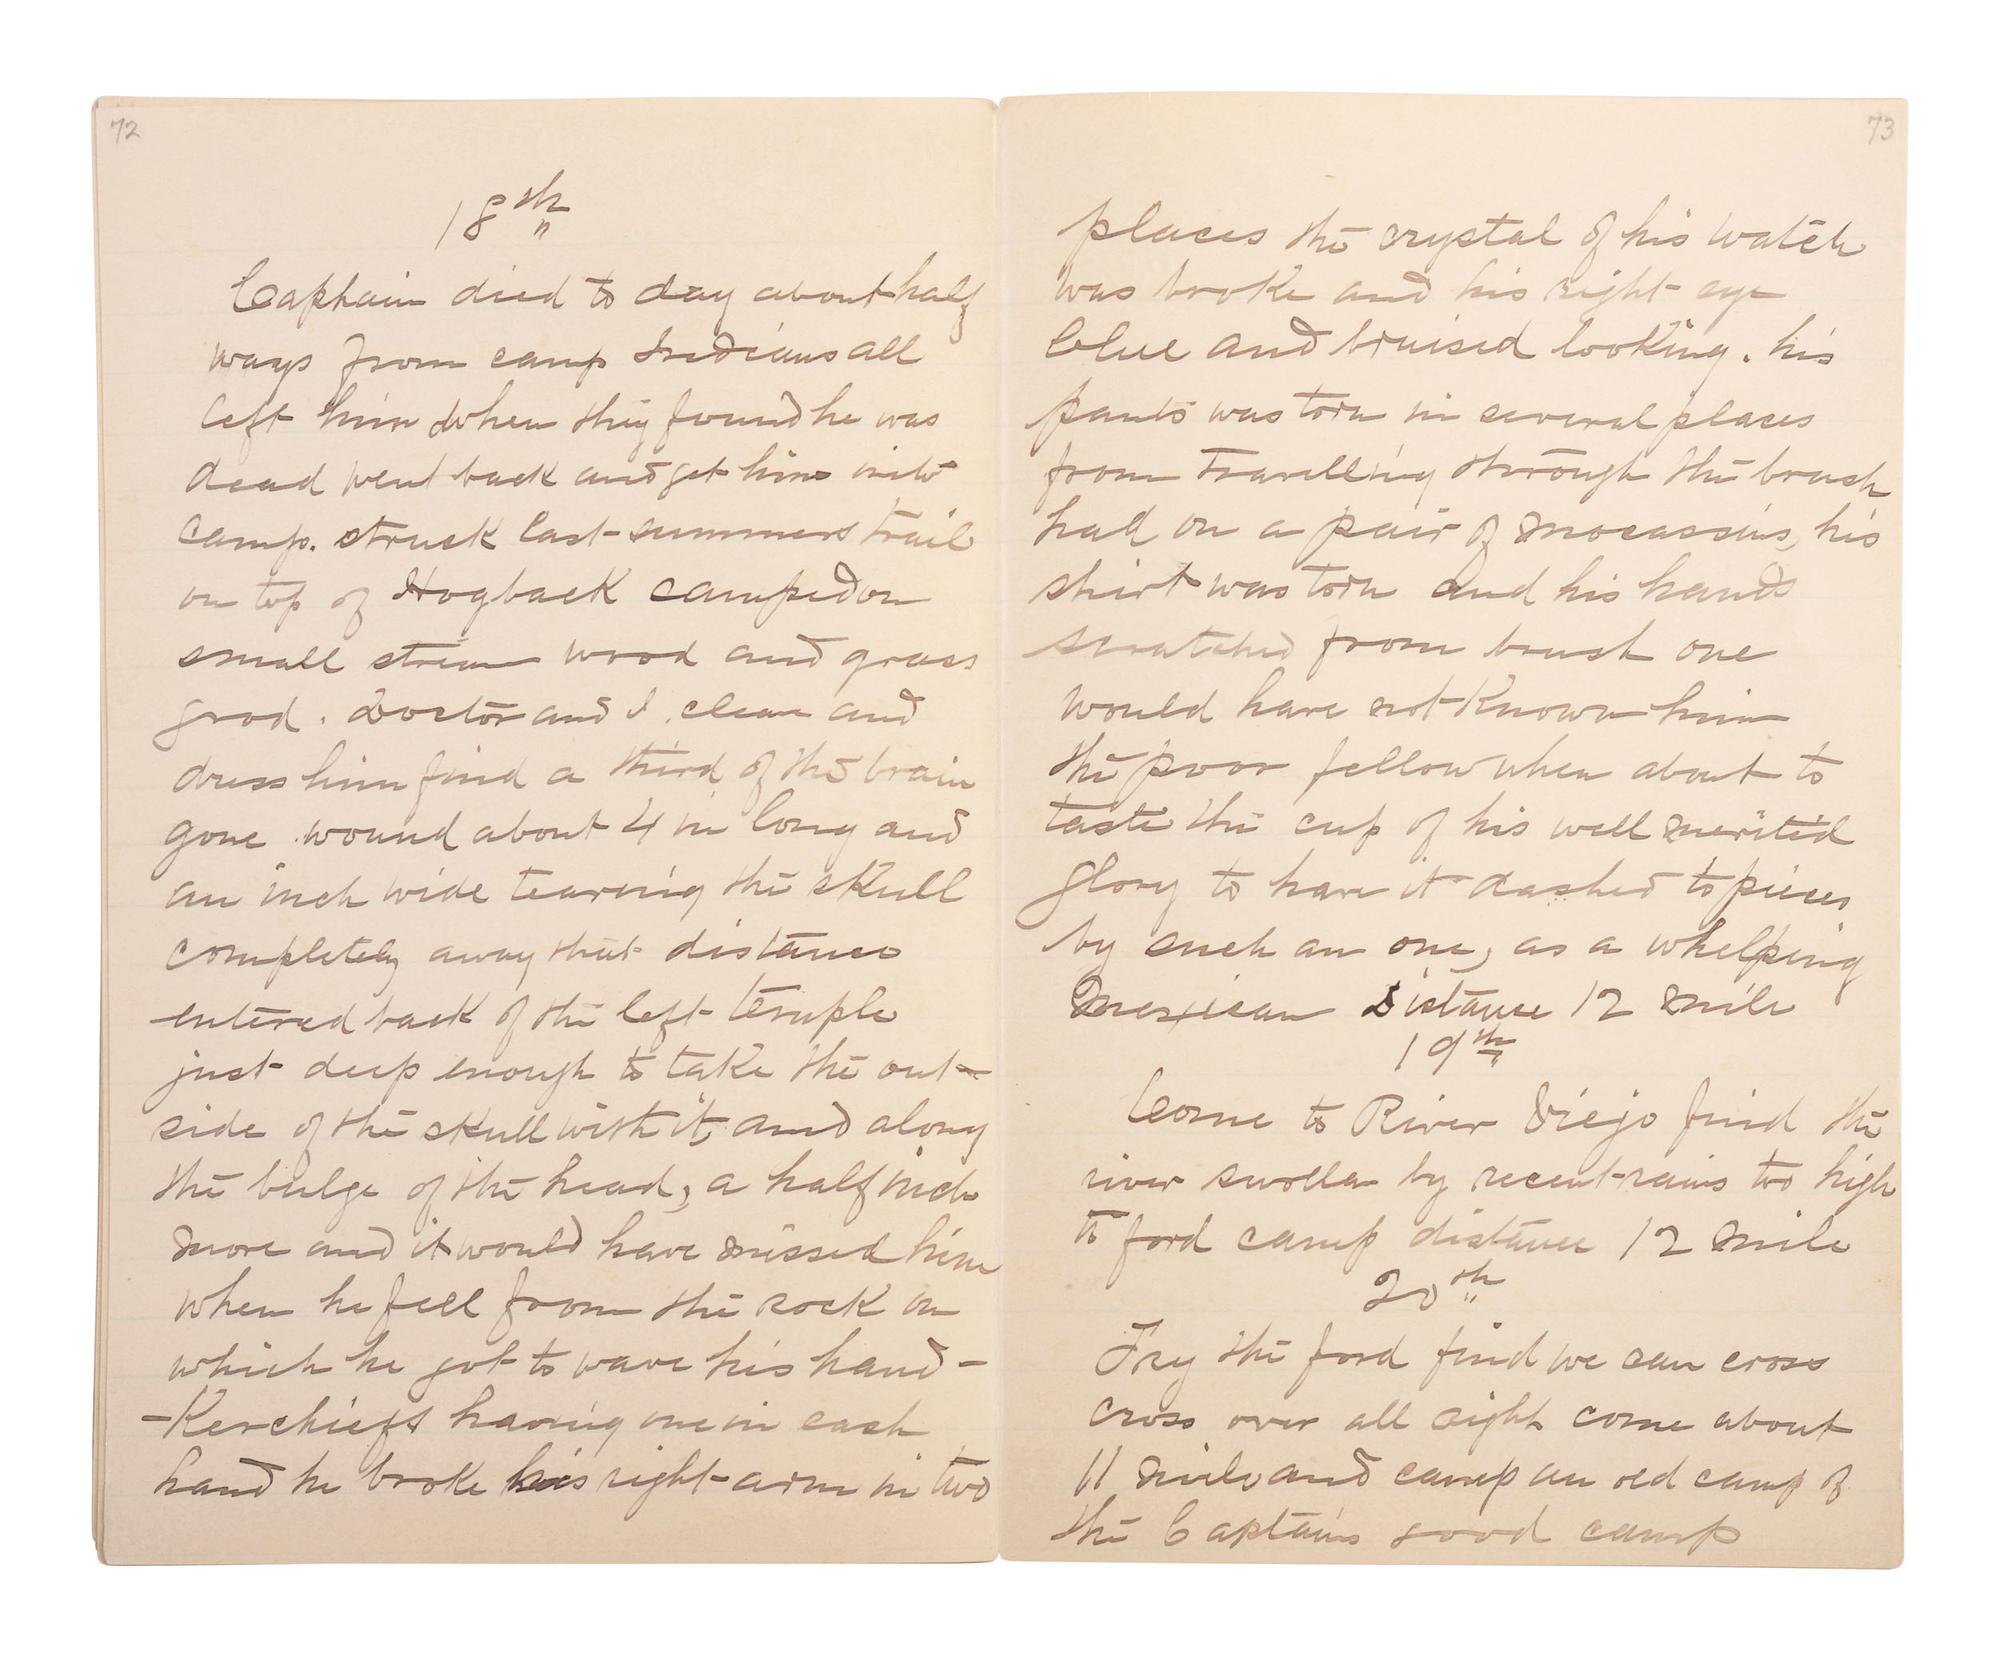 72
18th
Captain died to day about half
ways from camp Indians all
left him when they found he was
dead went back and get him into
camp. struck last summers trail
on top of Hogback camped on
small stream wood and grass
good. Doctor and I clean and
dress him find a third of the brain
gone wound about 4 in long and
an inch wide tearing the skull
completely away that distance
entered back of the left temple
just deep enough to take the out-
side of the skull with it, and along
the bulge of the head, a half inch
more and it would have missed him
when he fell from the rock on
which he got to wave his hand-
-Kerchiefs having one in each
hand he broke his right arm in two
73
places the crystal of his watch
was broke and his right eye
blue and bruised looking. his
pants was torn in several places
from travelling through the brush
had on a pair of mocassins, his
shirt was torn and his hands
scratched from brush one
would have not known him
the poor fellow when about to
taste the cup of his well merited
glory to have it dashed to pieces
by such an one, as a whelping
Mexican Distance 12 mile
19th
Come to River Viejo find the
river swollen by recent rains too high
to ford camp distance 12 mile
20th
Try the ford find we can cross
cross over all right come about
11 mile and camp an old camp of
the Captains good camp